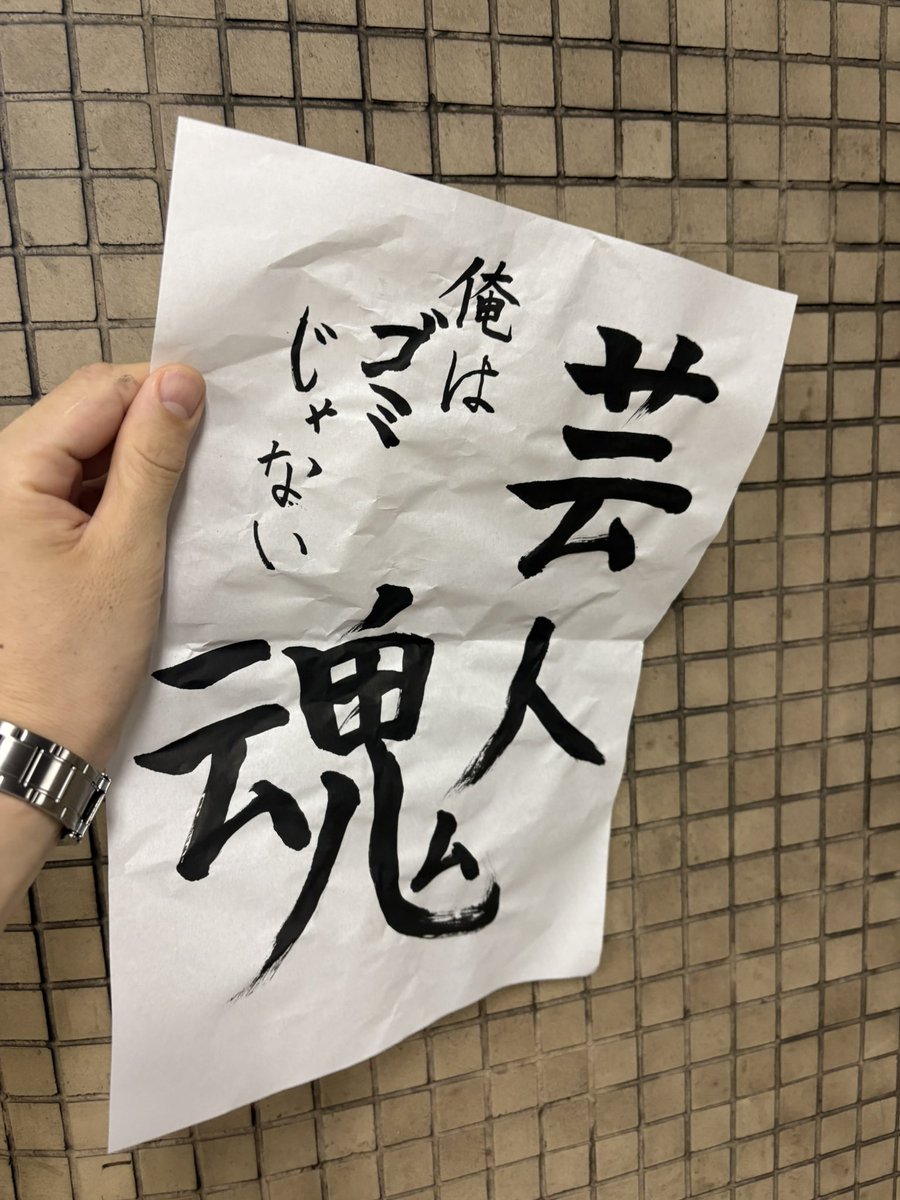 芸人
魂
俺は
ゴミ
じゃない